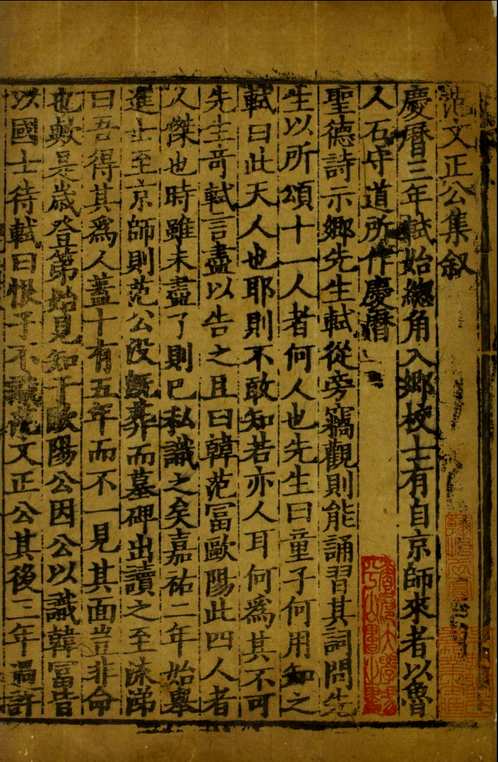 范文正公集叙
慶曆三年軾始緫角入鄉校士有自京師來者以魯
人石守道所作慶曆
聖德詩示鄉先生軾從旁竊觀則能誦習其詞問先
生以所頌十一人者何人也先生曰童子何用知之
軾曰此天人也耶則不敢知若亦人耳何為其不可
先生竒軾言盡以告之且曰韓范冨歐陽此四人者
人傑也時雖未盡了則已私識之矣嘉祐二年始舉
進士至京師則范公殁旣葬而墓碑出讀之至流涕
曰吾得其為人蓋十有五年而不一見其面豈非命
也歟是嵗登第始見知于歐陽公因公以識韓冨皆
以國士待軾曰恨子不識范文正公其後三年過許